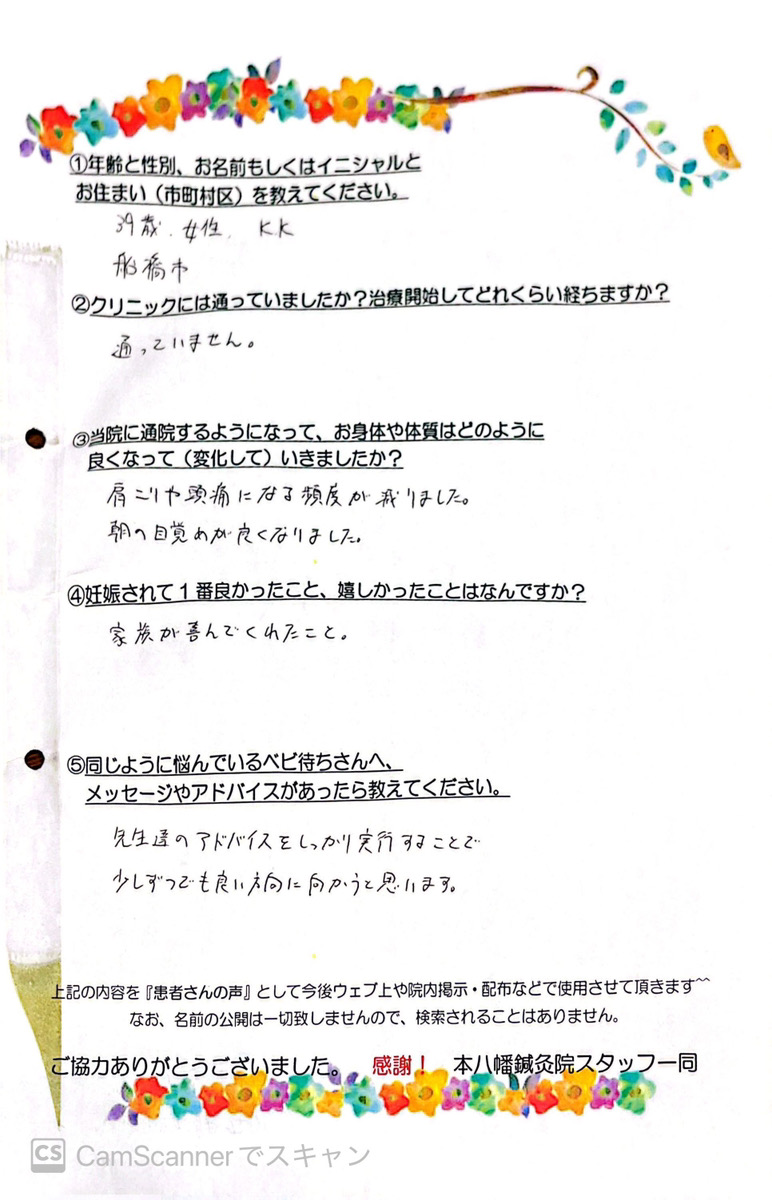 ①年齢と性別、お名前もしくはイニシャルと
お住まい（市町村区）を教えてください。
39歳、女性、KK
船橋市
②クリニックには通っていましたか？治療開始してどれくらい経ちますか？
通っていません。
③当院に通院するようになって、お身体や体質はどのように
良くなって（変化して）いきましたか？
肩こりや頭痛になる頻度が減りました。
朝の目覚めが良くなりました。
④妊娠されて1番良かったこと、嬉しかったことはなんですか？
家族が喜んでくれたこと。
⑤同じように悩んでいるベビ待ちさんへ、
メッセージやアドバイスがあったら教えてください。
先生達のアドバイスをしっかり実行することで
少しずつでも良い方向に向かうと思います。
上記の内容を『患者さんの声』として今後ウェブ上や院内掲示・配布などで使用させて頂きます^^
なお、名前の公開は一切致しませんので、検索されることはありません。
ご協力ありがとうございました。 感謝！ 本八幡鍼灸院スタッフ一同
CS CamScannerでスキャン